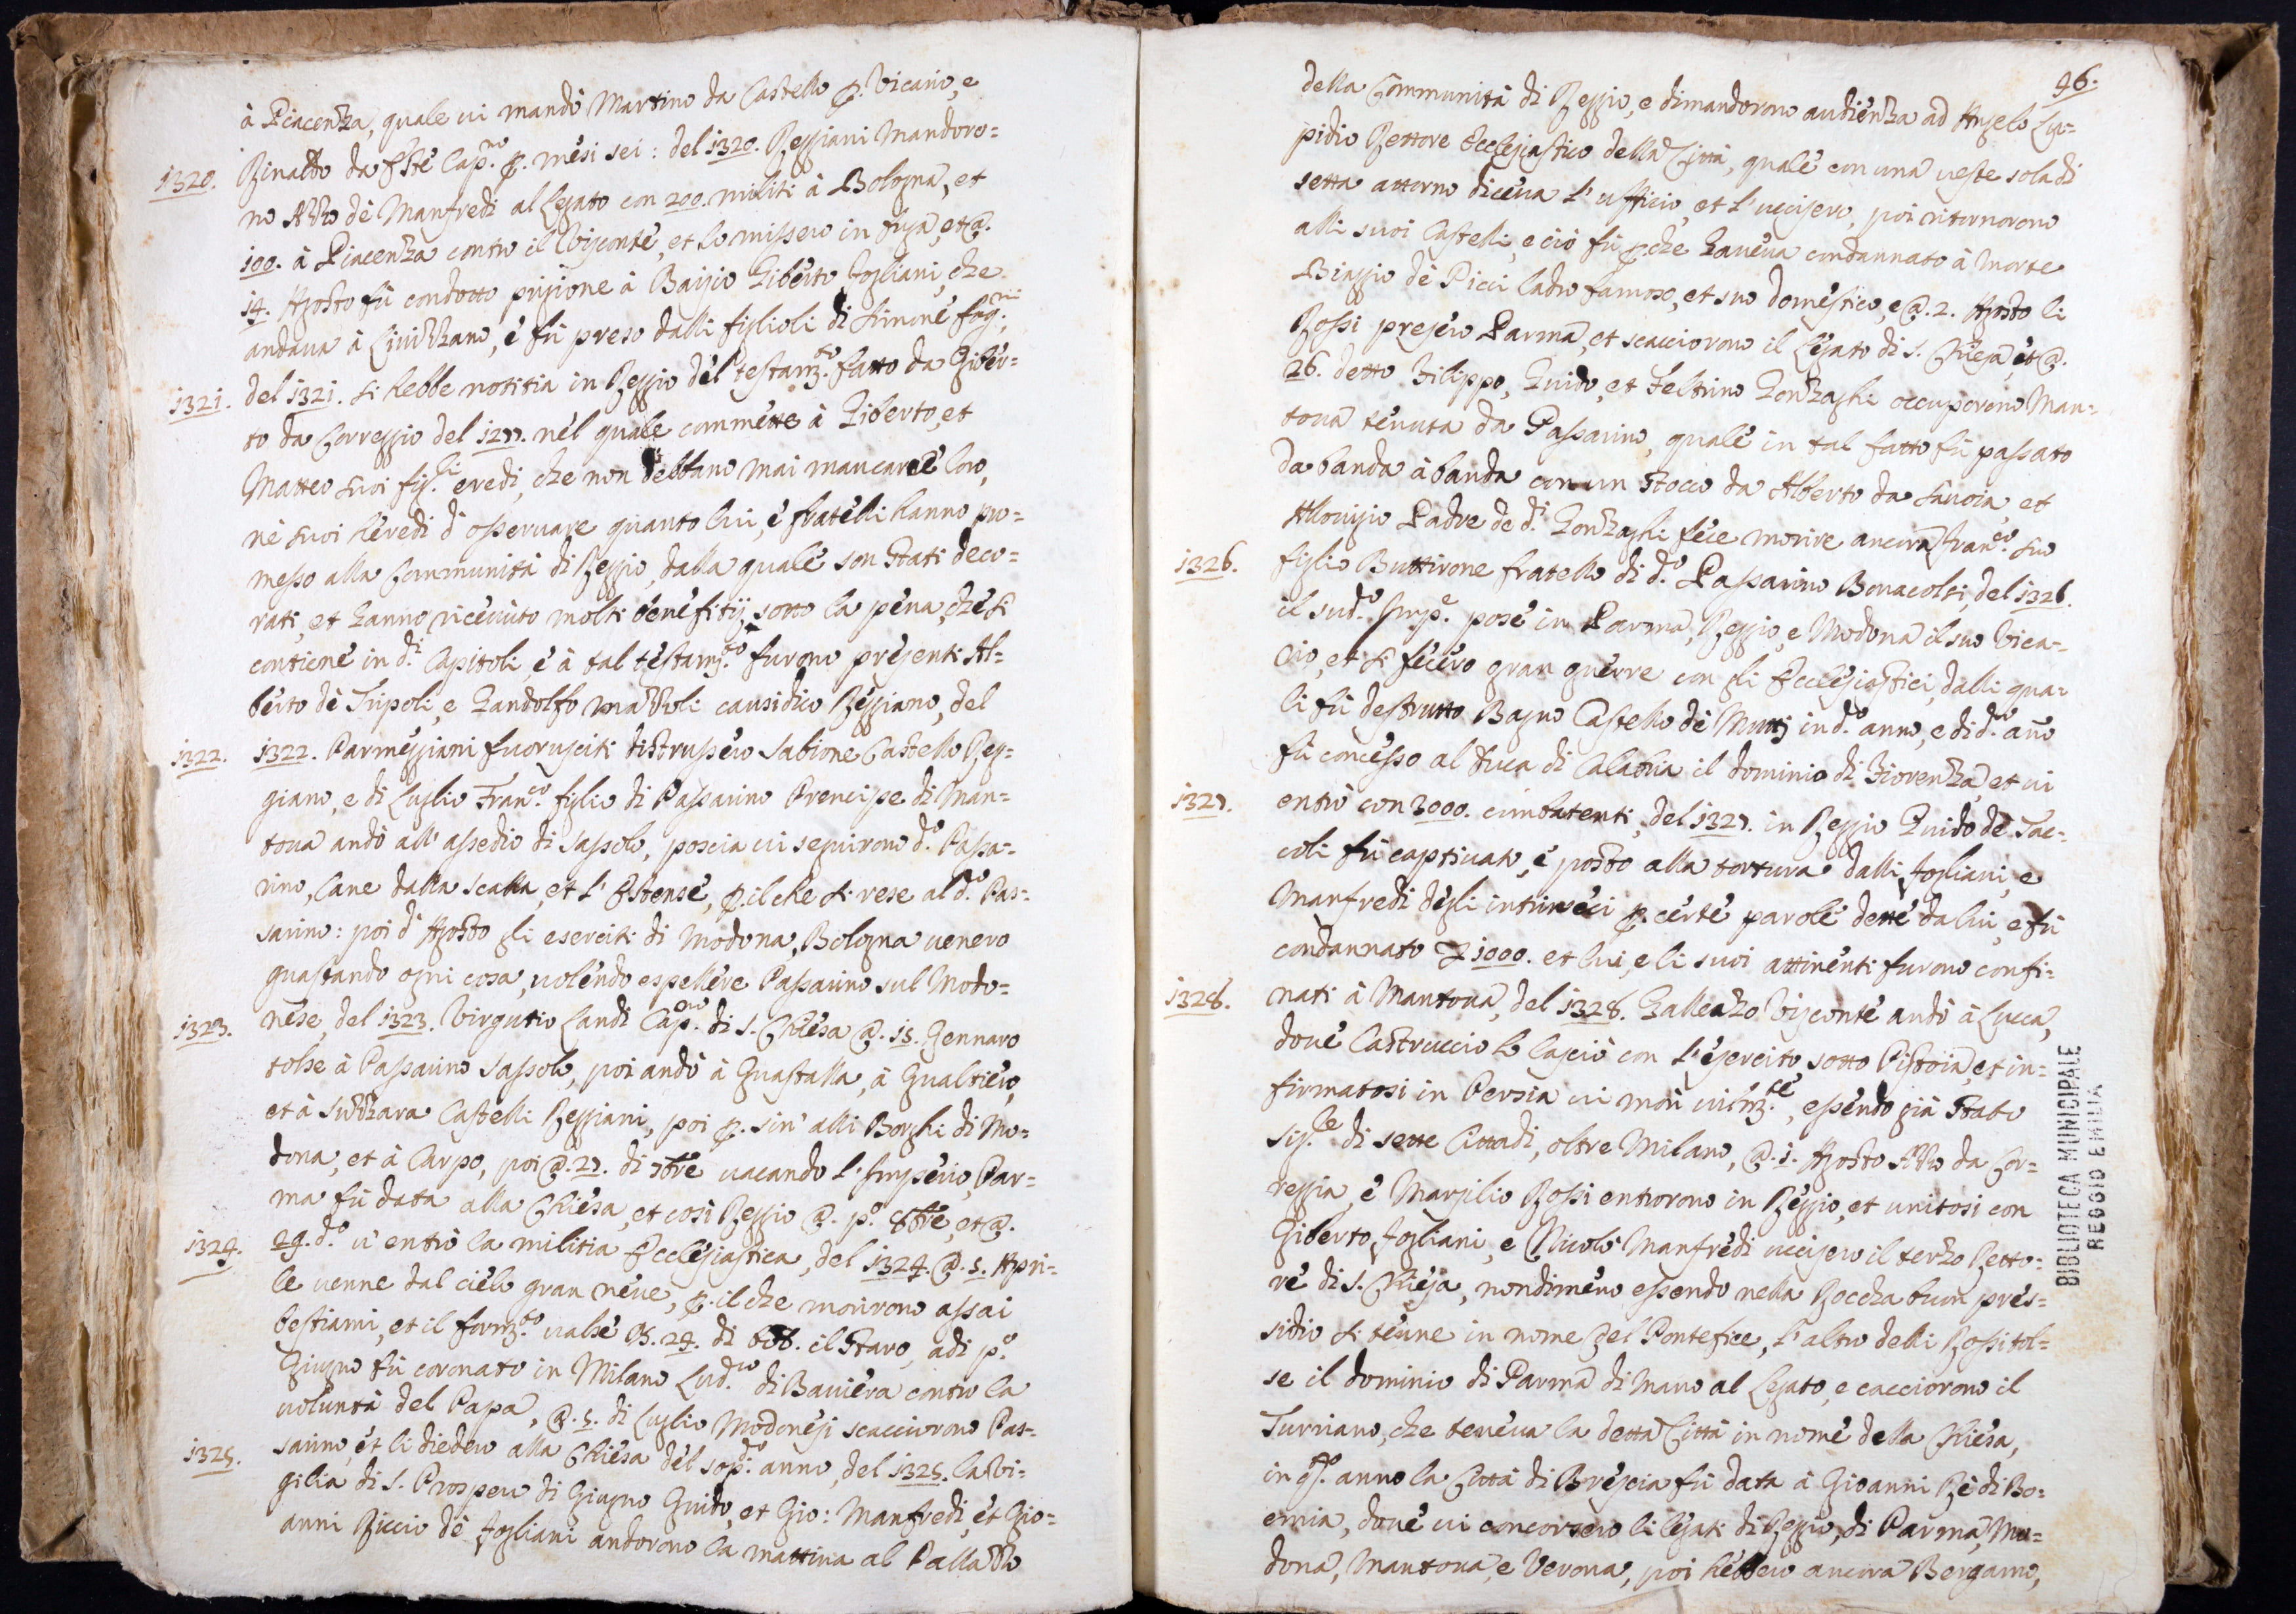 à Piacenza, quale vi mandò Martino da Castello p. Vicario, e
1320. Rinaldo da Este Cap.no p. mesi sei: del 1320. Reggiani mandoro=
no Azzo dè Manfredi al Legato con 200. militi à Bologna, et
100. à Piacenza contro il Visconte, et lo missero in fuga, et @.
14. Agosto fù condotto prigione à Baisio Giberto Fogliani, che
andaua à Liuizzano, è fù preso dalli figlioli di Simone
1321. del 1321. si hebbe notitia in Reggio del testam.to fatto da Giber=
to da Correggio del 1277. nel quale commette à Giberto, et
Matteo suoi fig.li eredi, che non debbano mai mancare loro,
nè suoi heredi d'osseruare quanto lui, è fratelli hanno pro=
messo alla Communità di Reggio, dalla quale son stati deco=
rati, et hanno riceuuto molti benefitij, sotto la pena, che si
contiene in d.i Capitoli, è à tal testam.to furono presenti Al=
berto dè Tripoli, e Gandolfo mazzoli causidico Reggiano, del
1322. 1322. Parmeggiani fuorusciti distrussero Sabione Castello Reg=
giano, e di Luglio Fran.co figlio di Passarino Prencipe di Man=
toua andò all'assedio di Sassolo, poscia ui seguirono d.o Passa=
rino, Cane dalla Scalla, et l'Estense, p. il che si rese al d.o Pas=
sarino: poi d'Agosto gli eserciti di Modona, Bologna uenero
guastando ogni cosa, uolendo espellere Passarino sul Modo=
1323. nese, del 1323. Vergutio Landi Cap.no di S. Chiesa @. 15. Gennaro
tolse à Passarino Sassolo, poi andò à Guastalla, à Gualtiero,
et à Suzzara Castelli Reggiani, poi p. sin'alli Borghi di Mo=
dona, et à Carpo, poi @. 27. di 7bre uacando l'Imperio, Par=
ma fù data alla Chiesa, et così Reggio @. p.o 8bre, et @.
1324. 29. d.o u'entrò la militia Ecclesiastica, del 1324. @. 5. Apri=
le uenne dal cielo gran neue, p. il che morirono assai
bestiami, et il form.to ualse 24. di il staro, adi p.o
Giugno fù coronato in Milano Lud.co di Bauiera contro la
uoluntà del Papa, @. 5. di Luglio Modonesi scacciorono Pas=
1325. sarino, et li diedero alla Chiesa del sop.do anno, del 1325. la Vi=
gilia di S. Prospero di Giugno Guido, et Gio: Manfredi, et Gio=
anni Riccio dè Fogliani andorono la mattina al Pallazzo
46.
della Communità di Reggio, e dimandorono audienza ad Angelo Lu=
pidio Rettore Ecclesiastico della Città, quale con una ueste sola di
setta attorno diceua l'ufficio, et l'uccisero, poi ritornorono
alli suoi Castelli, e ciò fù p.che haueua condannato à morte
Biaggio dè Picci ladro famoso, et suo domestico, e @. 2. Agosto li
Rossi presero Parma, et scacciorono il Legato di S. Chiesa, et @.
26. detto Filippo, Guido, et Feltrino Gonzaghi occuporono Man=
toua tenuta da Passarino, quale in tal fatto fù passato
da banda à banda con un stocco da Alberto da Sauoia, et
Alouigio Padre de d.i Gonzaghi fece morire ancora Fran.co suo
1326. figlio Buttirone fratello di d.o Passarino Bonacolsi, del 1326.
il sud.o Imp.e pose in Parma, Reggio, e Modona il suo Vica=
rio, et si fecero gran guerre con gli Ecclesiastici, dalli qua=
li fù destrutto Bagno Castello dè Mutti in d.o anno, e di d.o año
fù concesso al Duca di Calabria il dominio di Fiorenza, et ui
1327. entrò con 3000. combatenti, del 1327. in Reggio Guido dè Tac=
coli fù captiuato, è posto alla tortura dalli Fogliani, e
Manfredi degli intrinseci p. certe parole dette da lui, e fù
condannato 1000. et lui, e li suoi attinenti furono confi=
1328. nati à Mantoua, del 1328. Galleazo Visconte andò à Lucca,
doue Castruccio lo lasciò con l'esercito sotto Pistoia, et in=
firmatosi in Persia ui morì uilm.te, essendo già stato
Sig.re di sette Cittadi, oltre Milano, @. 1. Agosto Azzo da Cor=
reggia, è Marsilio Rossi entrorono in Reggio, et unitosi con
Giberto Fogliani, e Nicolò Manfredi uccisero il terzo Retto=
re di S. Chiesa, nondimeno essendo nella Roccha buon pres=
sidio si tenne in nome del Pontefice, l'altro delli Rossi tol=
se il dominio di Parma di mano al Legato, e cacciorono il
Turriano, che teneua la detta Città in nome della Chiesa,
in q.o anno la Città di Brescia fù data à Gioanni Rè di Bo=
emia, doue ui concorsero li legati di Reggio, di Parma, Mo=
dona, Mantoua, e Verona, poi hebbero ancora Bergamo,
BIBLIOTECA MUNICIPALE
REGGIO EMILIA